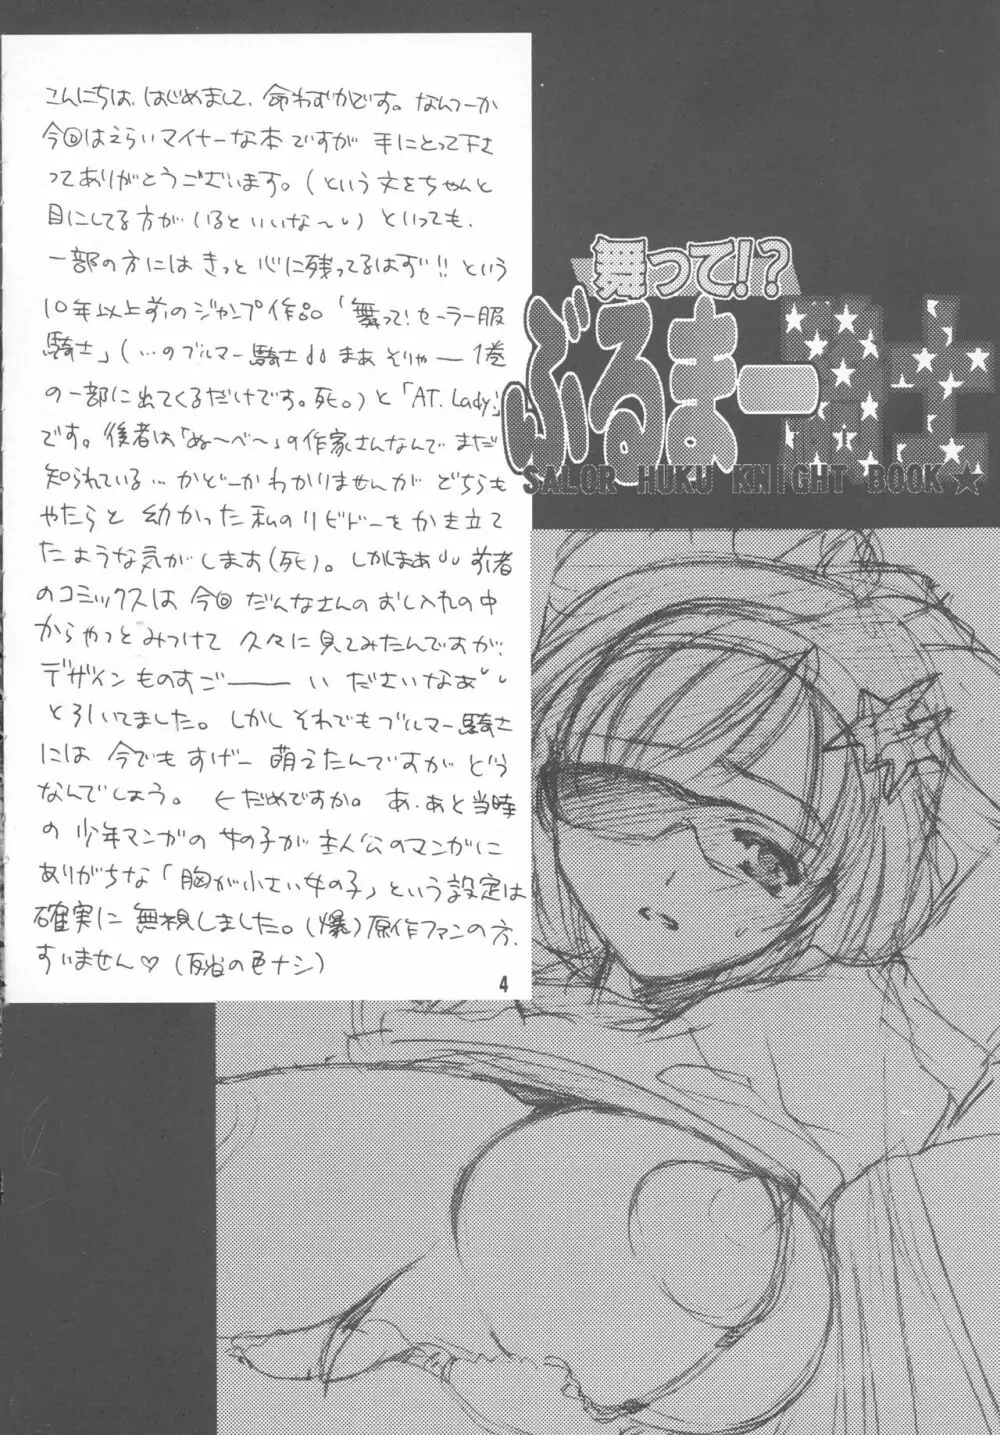 こんにちは、はじめまして、命わずかです。なんつーか
今回はえらいマイナーな本ですが 手にとって下さ
ってありがとうございます。(という文をちゃんと
目にしてる方が いるといいな〜い) といっても、
一部の方には きっと 心に残ってるはず!! という
10年以上前のジャンプ作品「舞って!セーラー服
騎士」(…のブルマー騎士 まあ そりゃー 1巻
の一部に出てくるだけです。死。)と「AT.Lady」
です。後者は「ぬ〜べ〜」の作家さんなんで まだ
知られている… かどーか わかりませんが どちらも
やたらと 幼かった 私の リビドーを かき立て
たような気がします(死)。しかしまあ 前者
のコミックスは 今回 だんなさんの おし入れの中
からやっと みつけて 久々に見てみたんですが、
デザイン ものすご――― い ださいなあ
と引いてました。しかし それでも ブルマー騎士
には 今でも すげー 萌えたんですが どう
なんでしょう。 ←だめですか。 あ、あと当時
の 少年マンガの 女の子が 主人公のマンガに
ありがちな「胸が小さい女の子」という設定は
確実に 無視しました。(爆) 原作ファンの方、
すいません♡ (反省の色ナシ)
4
舞って!?
ぶるまー騎士
SALOR HUKU KNIGHT BOOK★